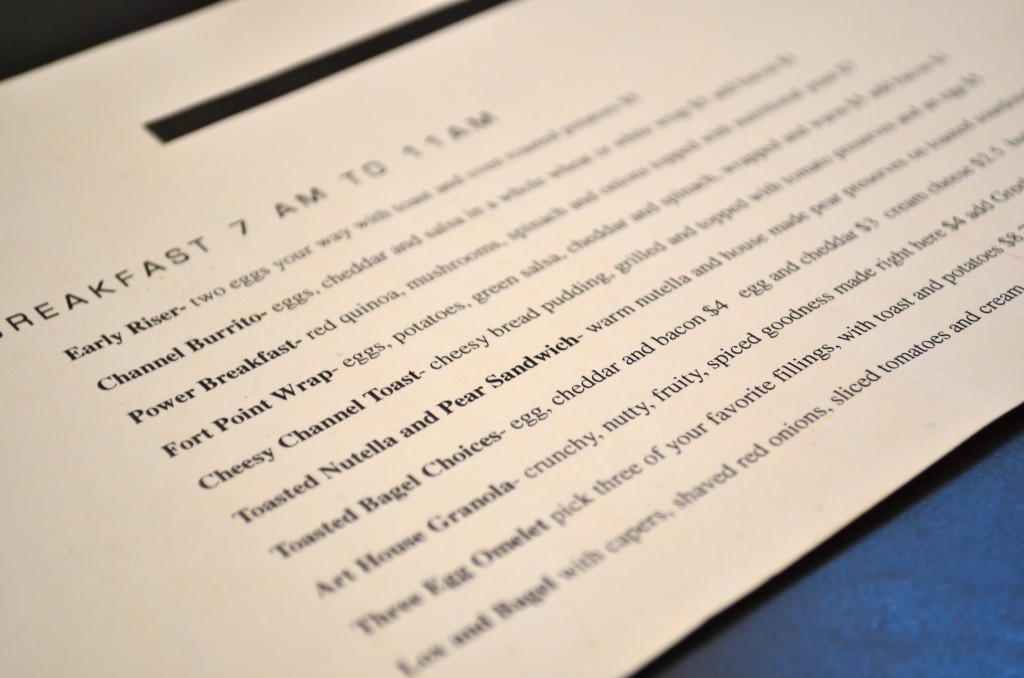 BREAKFAST 7 AM TO 11AM
Early Riser- two eggs your way with toast and oven roasted potatoes
Channel Burrito- eggs, cheddar and salsa in a whole wheat or white wrap add bacon
Power Breakfast- red quinoa, mushrooms, spinach and onions topped with nutritional yeast
Fort Point Wrap- eggs, potatoes, green salsa, cheddar and spinach, wrapped and warm add bacon
Cheesy Channel Toast- cheesy bread pudding, grilled and topped with tomato preserves and an egg
Toasted Nutella and Pear Sandwich- warm nutella and house made pear preserves on toasted
Toasted Bagel Choices- egg, cheddar and bacon $4 egg and cheddar $3 cream cheese $2.5
Art House Granola- crunchy, nutty, fruity, spiced goodness made right here $4 add
Three Egg Omelet pick three of your favorite fillings, with toast and potatoes $8
Lox and Bagel with capers, shaved red onions, sliced tomatoes and cream